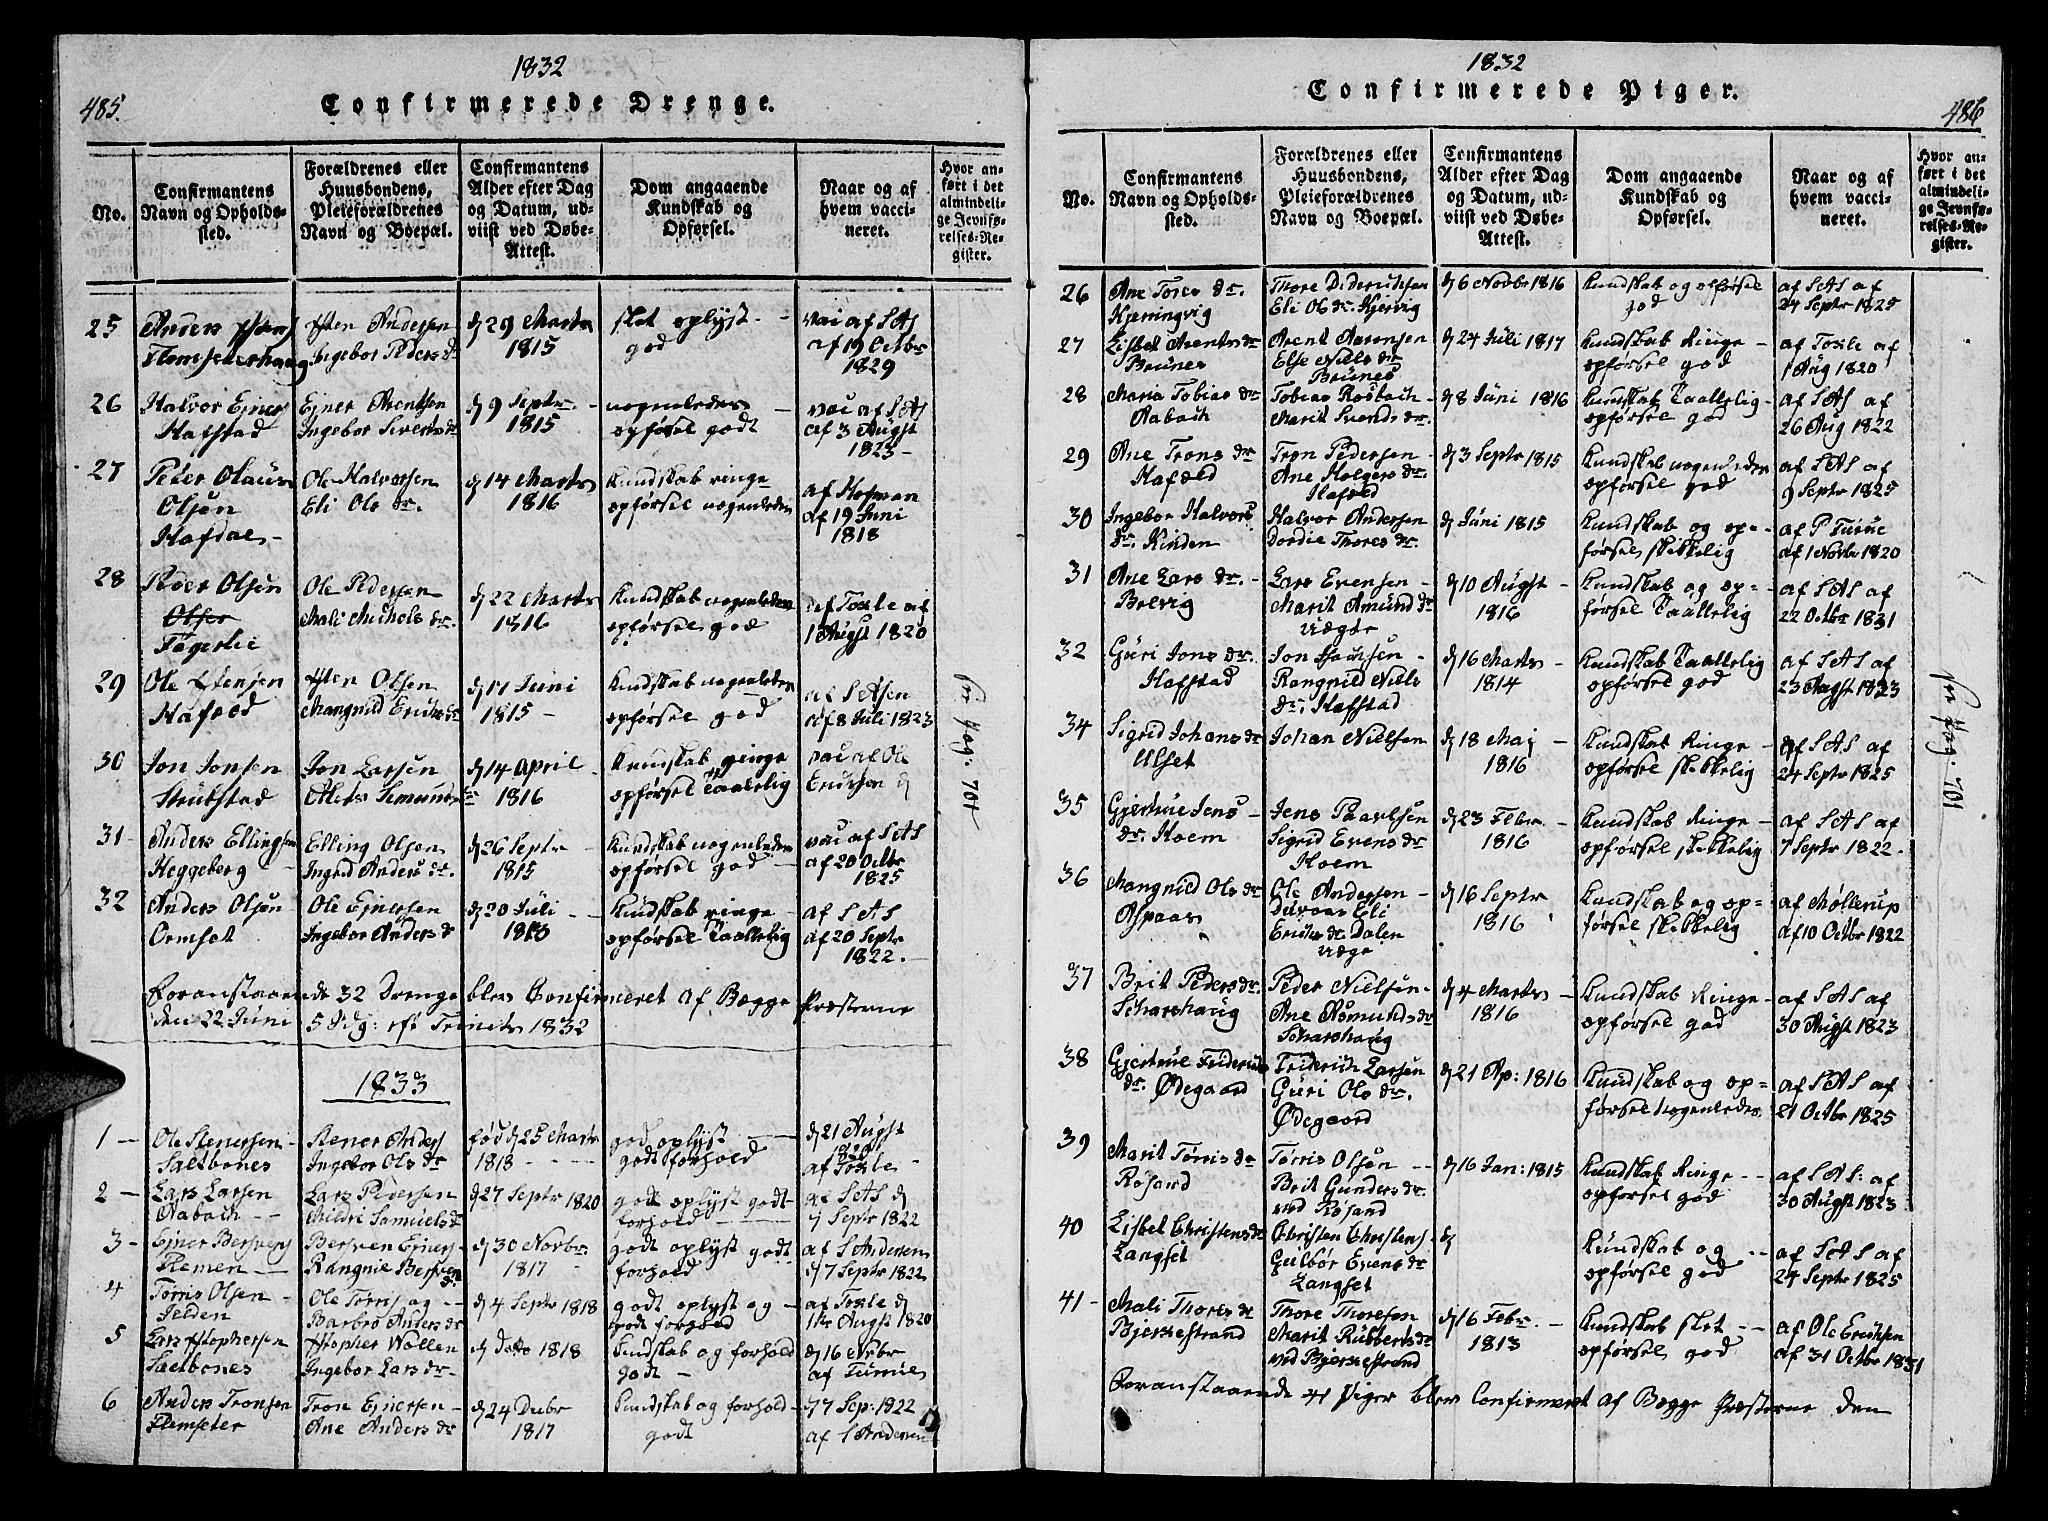 1832
485.
Confirmerede Drenge.
No.
Confirmantens
Navn og Opholds-
sted.
Forældrenes eller
Huusbondens,
Pleieforældrenes
Navn og Boepæl.
Confirmantens
Alder efter Dag
og Datum, ud-
viist ved Døbe-
Attest.
Dom angaaende
Kundskab og
Opførsel.
Naar og af
hvem vacci-
neret.
Hvor an-
ført i det
almindeli-
ge Jevnfø-
relses-Re-
gister.
25
Anders
Andersen
Ingebor Peders dr
d 29 Marts
1815
slet oplyst
god
vac af SAS
af 19 Octbr
1829
26
Halvor Ejners
Hafstad
Ejner Arentsen
Ingebor Siverts dr
d 9 Septr.
1815
nogenledes
opførsel godt
vac af SAS
af 3 Augst
1823
27
Peter Olaus
Olsen
Hafdal
Ole Halvorsen
Eli Ols dr.
d 14 Marts
1816
Kundskab ringe
opførsel nogenledes
af Hofman
af 19 Juni
1818
28
Peder Olsen
Olsen
Fagerlie
Ole Pedersen
Mali Michels dr.
d 22 Marts
1816
Kundskab nogenledes
opførsel god
af Toxle af
1 Augst 1820
29
Ole Stensen
Hafæld
Sten Olsen
Mangnild Erichs dr
d 17 Juni
1815
Kundskab nogenledes
opførsel god
af SASen
af 8 Juli 1823
30
Jon Jonsen
Strubstad
Jon Larsen
d 14 April
1816
Kundskab ringe
opførsel Taallelig
vac af Ole
Erichsen d
31
Anders Ellingsen
Heggeberg
Elling Olsen
Ingrid Anders dr.
d 26 Septr
1815
Kundskab nogenledes
opførsel god
vac af SAS
af 20 Octbr
1825
32
Anders Olsen
Ormset
Ole Ejnersen
Ingebor Anders dr
d 20 Juli
Kundskab ringe
opførsel Taallelig
af SAS
af 20 Septr
1822.
Foranstaaende 32 Drenge blev Confirmeret af Begge Præsterne
den 22 Juni 5 Sdg: eft Trinits 1832
1833
1
Ole Stenersen
Saltbones
Stener Anders
Ingebor Ols dr
fød d 25 Marts
1818
god oplyst
godt forhold
d 21 Augst
1820
af Toxle
2
Lars Larsen
Aabach
Lars Pedersen
Mildri Samuels dr
d 27 Septr 1820
godt oplyst godt
forhold
af SAS d
7 Septr 1822
3
Ejner Bersvens
Flemen
Bersven Ejners
Rangnie Bersven
dr
d 30 Novbr
1817
godt oplyst godt
forhold
af S Andersen
d 7 Septr 1822
4
Tørris Olsen
Jelden
Ole Tørris og
Barbro Anders dr
d 4 Septr 1818
godt oplyst og
godt forhold
af Toxle d
1ste Augst 1820
5
Lars Stophersen
Saltbones
Stopher Wollen
Ingebor Lars dr
d Dato 1818
Kundskab og forhold
godt
d 16 Novbr
6
Anders Tronsen
Flemseter
Tron Ejnersen
Ane Anders dr
d 24 Decbr
1817
Kundskab og forhold
godt
d 7 Sep: 1822
af S Andersen
Pag. 701
1832
Confirmerede Piger.
486
No.
Confirmantens
Navn og Opholds-
sted.
Forældrenes eller
Huusbondens,
Pleieforældrenes
Navn og Boepæl.
Confirmantens
Alder efter Dag
og Datum, ud-
viist ved Døbe-
Attest.
Dom angaaende
Kundskab og
Opførsel.
Naar og af
hvem vacci-
neret.
Hvor an-
ført i det
almindeli-
ge Jevnfø-
relses-Re-
gister.
26
Ane Tores dr.
Kjerringvig
Thore Dideriksen
Eli Ols dr. Kjervig
d 6 Novbr 1816
Kundskab og opførsel
god
af SAS af
24 Septr 1825
27
Lisbet Arents dr
Brunes
Arent Aarensen
Else Niels dr
Brunes
d 24 Juli 1817
Kundskab Ringe
opførsel god
af Toxle af
1 Aug 1820
28
Maria Tobias dr
Aabach
Tobias Rosbach
Marit Svends dr.
d 8 Juni 1816
Kundskab Taallelig
opførsel god
af SAS af
26 Aug 1822
29
Ane Trons dr
Hafæld
Tron Pedersen
Ane Holgers dr.
Hafæld
d 3 Septr 1815
Kundskab nogenledes
opførsel god
af SAS af
9 Septr 1825
30
Ingebor Halvors
dr. Kinden
Halvor Andersen
Dordie Thores dr
d Juni 1815
Kundskab og op-
førsel skikkelig
af P Furue
af 1 Novbr 1820
31
Ane Lars dr.
Brevig
Lars Evensen
Marit Amund dr
Vægde
d 10 Augst
1816
Kundskab og op-
førsel Taallelig
af SAS af
22 Octbr 1831
32
Guri Jons dr.
Hafstad
Jon
Rangnild Niels
dr. Hafstad
d 16 Marts
1814
Kundskab Taallelig
opførsel god
af SAS af
23 Augst 1823
34
Sigrid Johans dr
Ulset
Johan Nielsen
d 18 Maj
1816
Kundskab Ringe
opførsel skikkelig
af SAS af
24 Septr 1825
35
Gjertrue Jens
dr. Hoem
Jens Paavlsen
Sigrid Evens dr
Hoem
d 23 Febr
1816
Kundskab Ringe
opførsel skikkelig
af SAS af
7 Septr 1822.
36
Mangnild Ols dr
Aspaas
Ole Andersen
Eli
Erichs dr Dalen
d 16 Septr
1816
Kundskab og op-
førsel skikkelig
af Møllerup
af 10 Octbr 1822
37
Brit Peders dr.
Scharshaug
Peder Nielsen
Ane Asmunds dr
Scharshaug
d 4 Marts
1816
Kundskab Ringe
opførsel god
af SAS af
30 Augst 1823
38
Gjertrue Friderich
dr. Ødegaard
Friderich Larsen
Guri Ols dr.
Ødegaard
d 21 Ap: 1816
Kundskab og op-
førsel nogenledes
af SAS af
21 Octbr 1825
39
Marit Tørris dr
Røsand
Tørris Olsen
Brit Gunders dr.
ved Røsand
d 16 Jan: 1815
Kundskab Ringe
opførsel god
af SAS: af
30 Augst 1823
40
Lisbet Christens dr
Langset
Christen Christens
Gulbor Evens dr
Langset
d
Kundskab og
opførsel god
af SAS af
24 Septr 1825
41
Mali Thores dr
Bjerkestrand
Thore Thoresen
Marit Rubberts dr
ved Bjerkestrand
d 16 Febr.
1813
Kundskab slet
opførsel god
af Ole Erichsen
af 31 Octbr 1831
Foranstaaende 41 Piger blev Confirmeret af Begge Præsterne den
Pag. 701